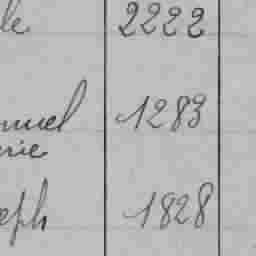 le 2222
nuel 1283
rie
eph 1828